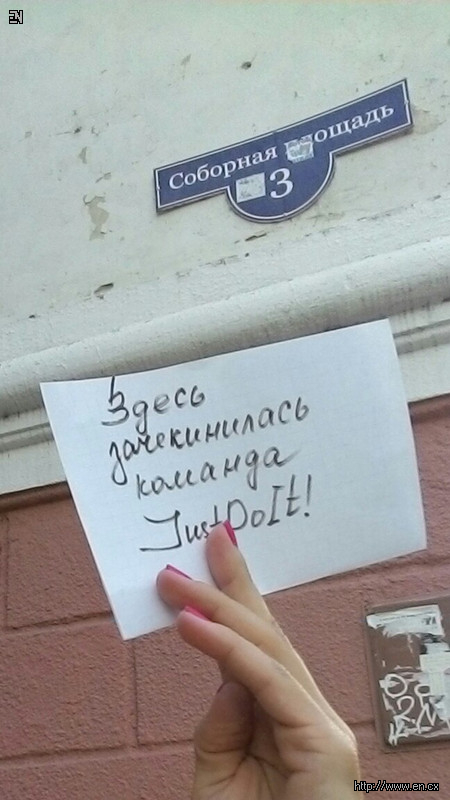 EN
Соборная площадь
3
Здесь
зачекинилась
команда
JustDoIt!
http://www.en.cx